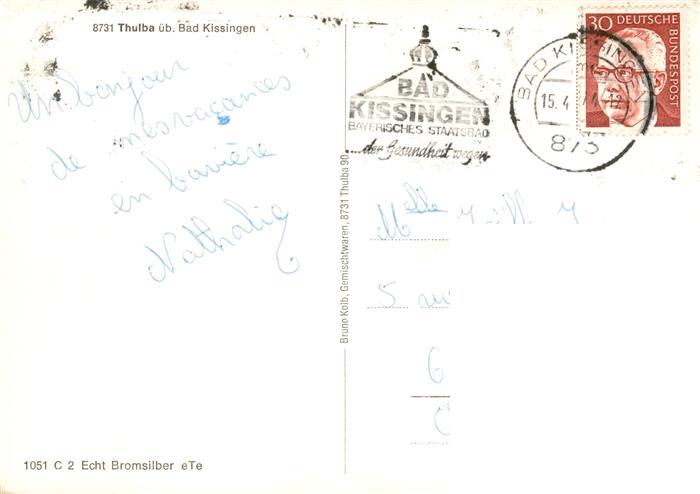 8731 Thulba üb. Bad Kissingen
Un bonjour
de mes vacances
en bavière
Nathalie
1051 C 2 Echt Bromsilber eTe
Bruno Kolb, Gemischtwaren, 8731 Thulba 90
BAD
KISSINGEN
BAYERISCHES STAATSBAD
...der Gesundheit wegen
BAD KISSINGEN
15.4
873
30 DEUTSCHE
BUNDESPOST
Melle
5
6